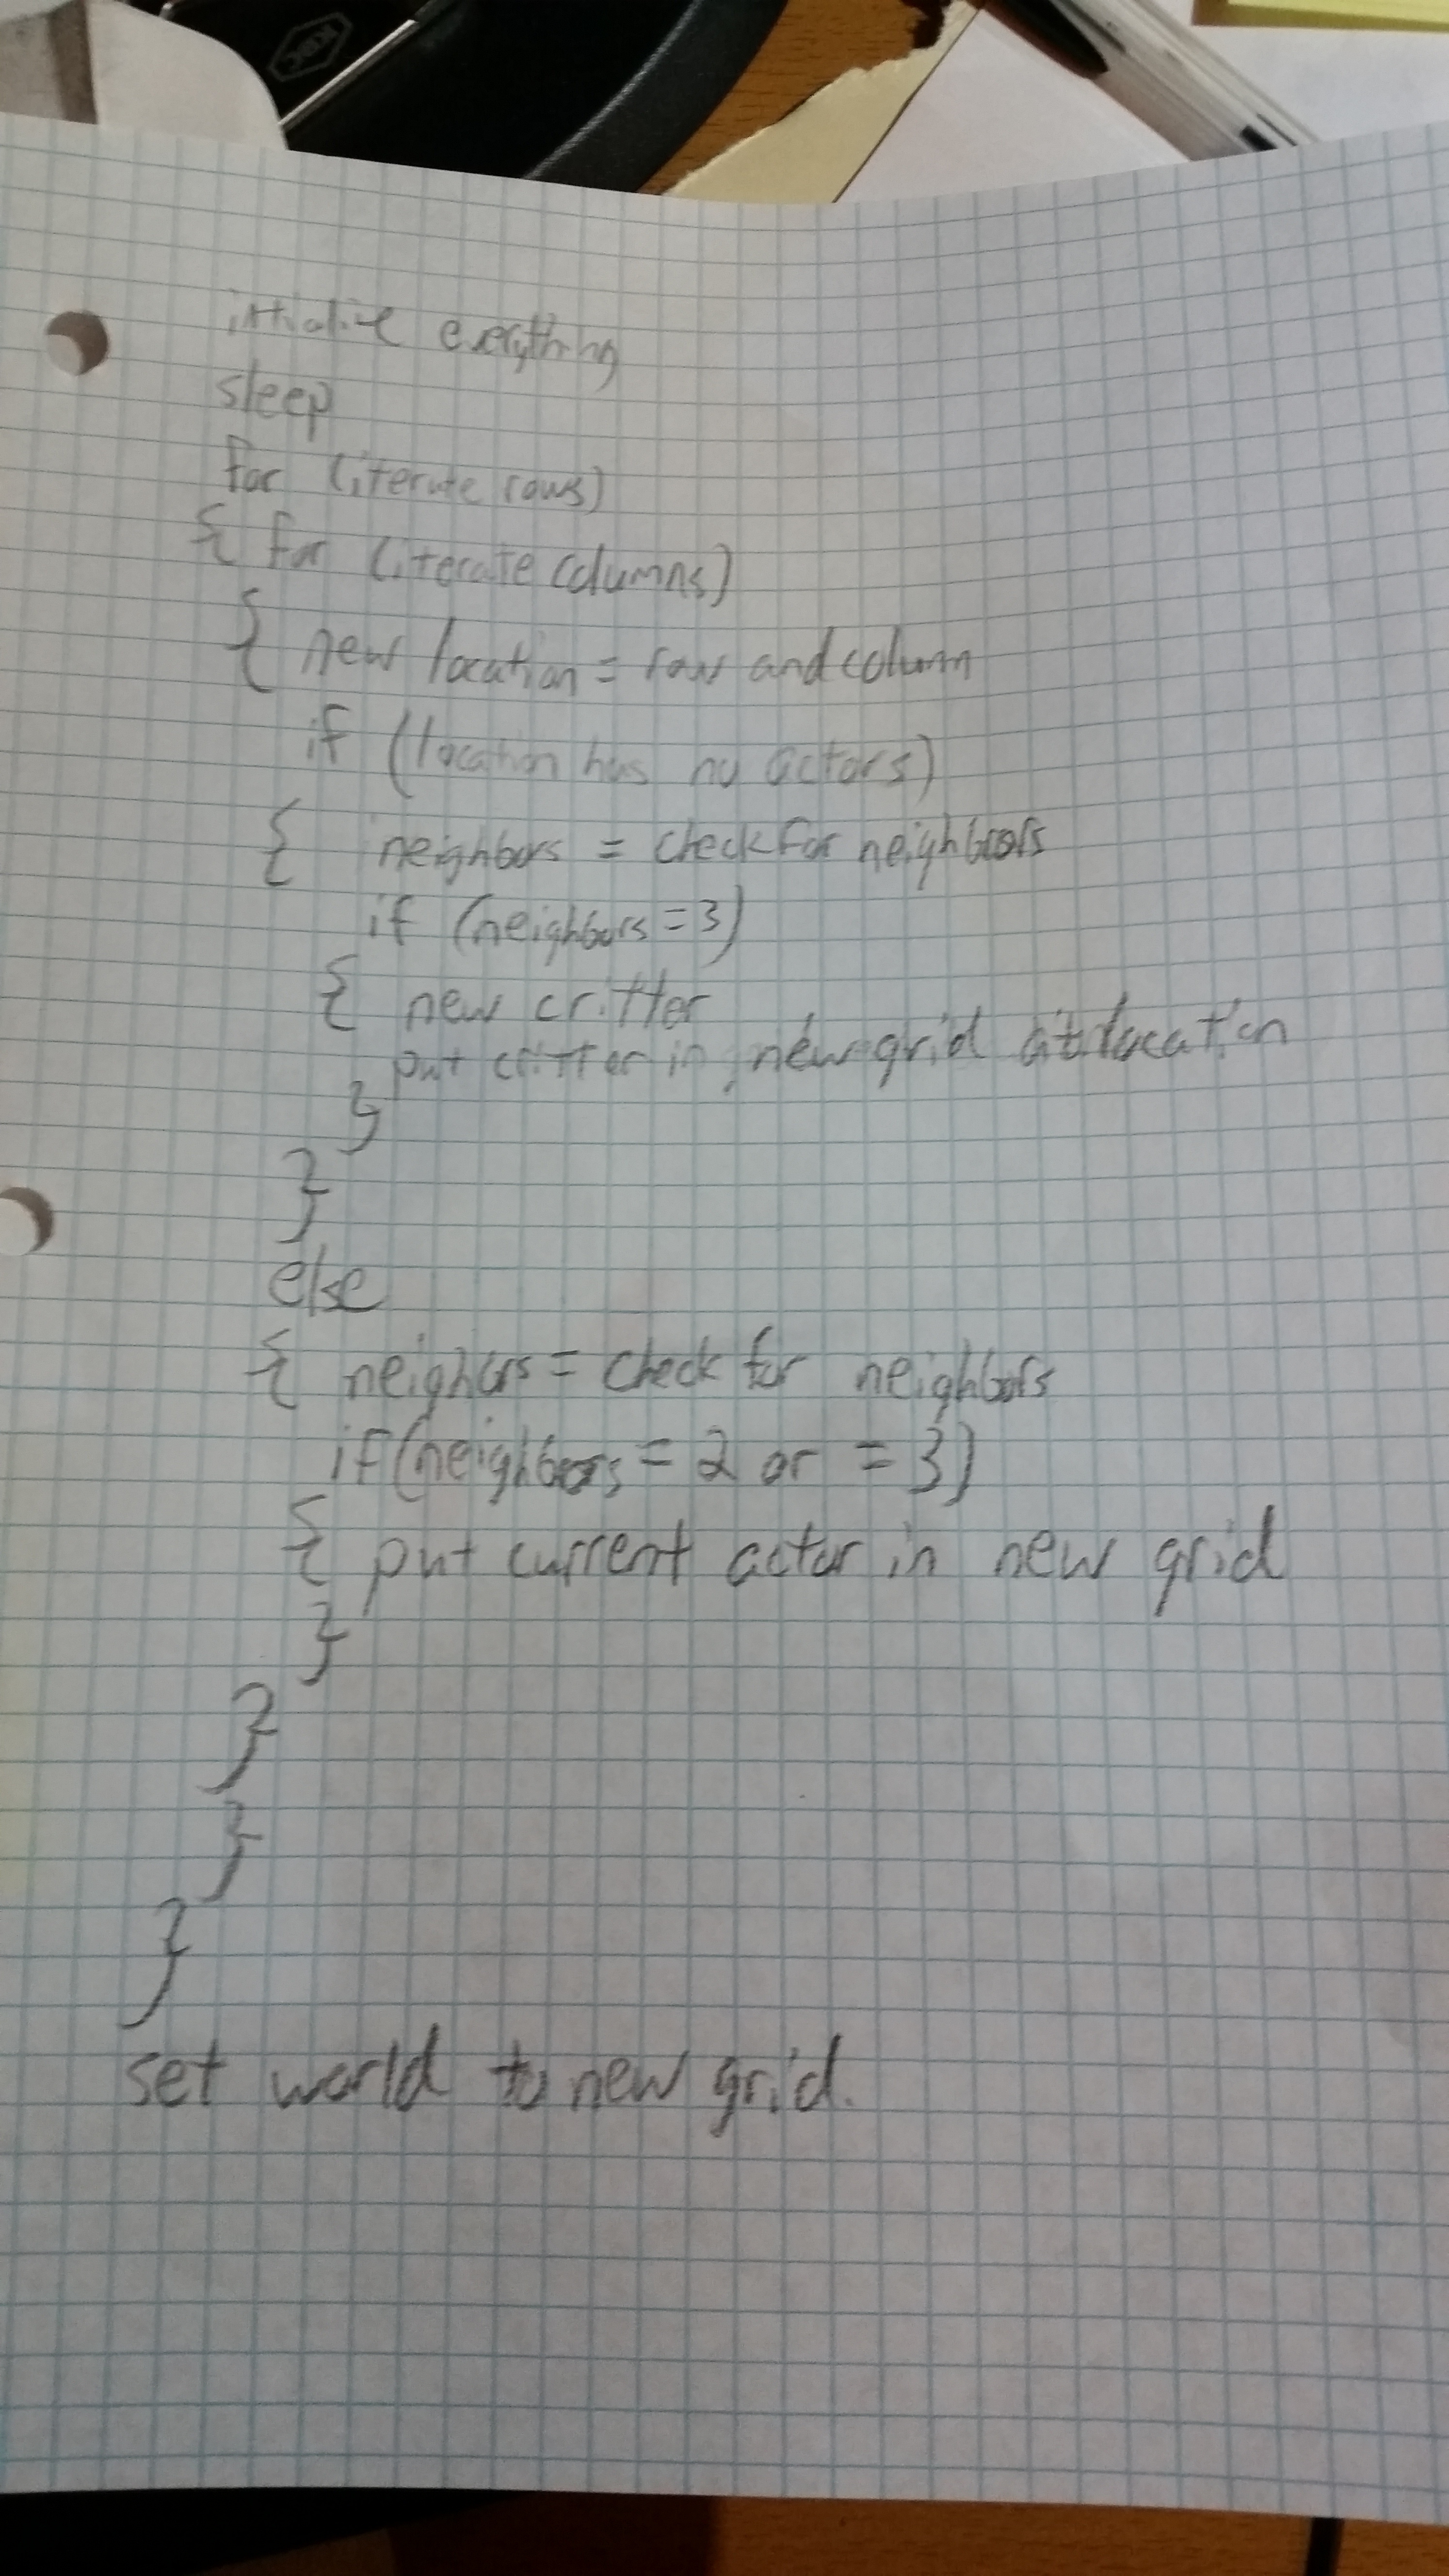 intialize everything
sleep
for (iterate rows)
{ for (iterate columns)
{ new location = row and column
if (location has no actors)
{ neighbors = check for neighbors
if (neighbors = 3)
{ new critter
put critter in newgrid at location
}
}
else
{ neighbors = check for neighbors
if (neighbors = 2 or = 3)
{ put current actor in new grid
}
}
}
}
set world to new grid.